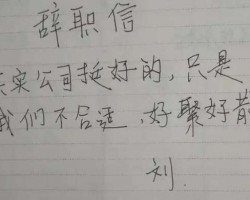 辞职信
其实公司挺好的，只是
我们不合适，好聚好散
刘.